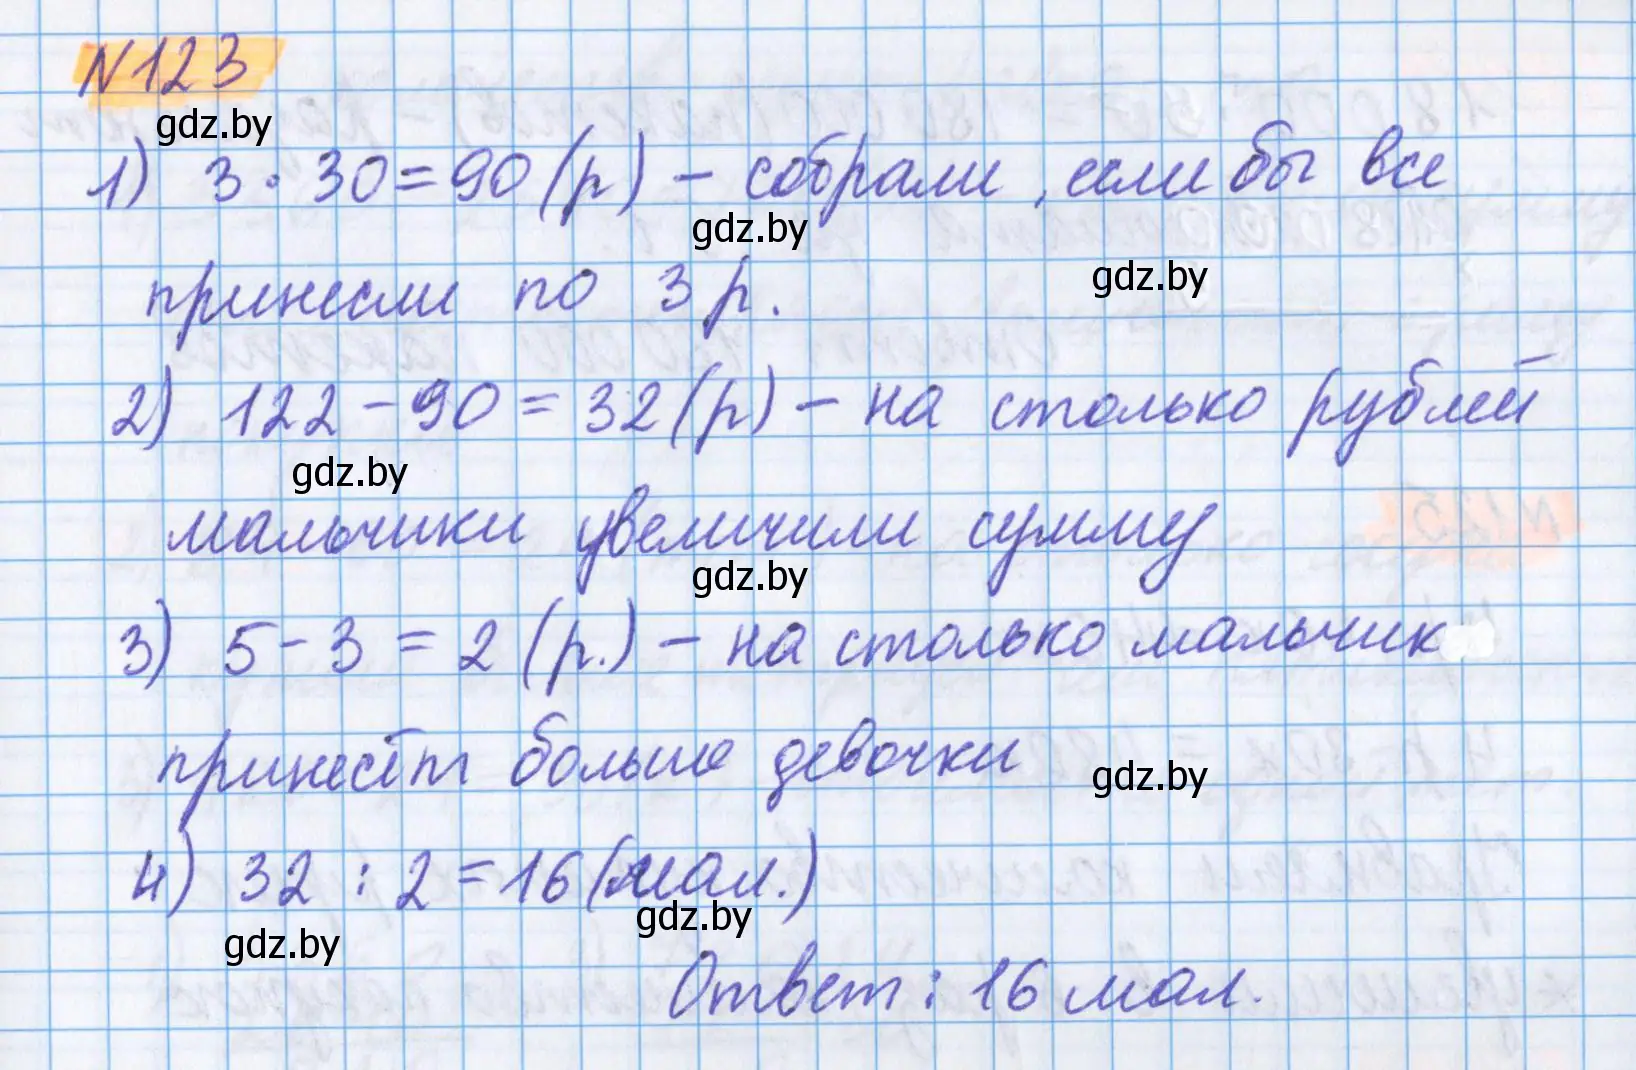 N 123
gdz.by
1) 3 · 30 = 90 (р) – собрали, если бы все
gdz.by
принесли по 3 р.
gdz.by
2) 122 – 90 = 32 (р) – на столько рублей
gdz.by
мальчики увеличили сумму
gdz.by
3) 5 – 3 = 2 (р.) – на столько мальчик
принесёт больше девочки
gdz.by
4) 32 : 2 = 16 (мал.)
gdz.by
gdz.by
Ответ: 16 мал.